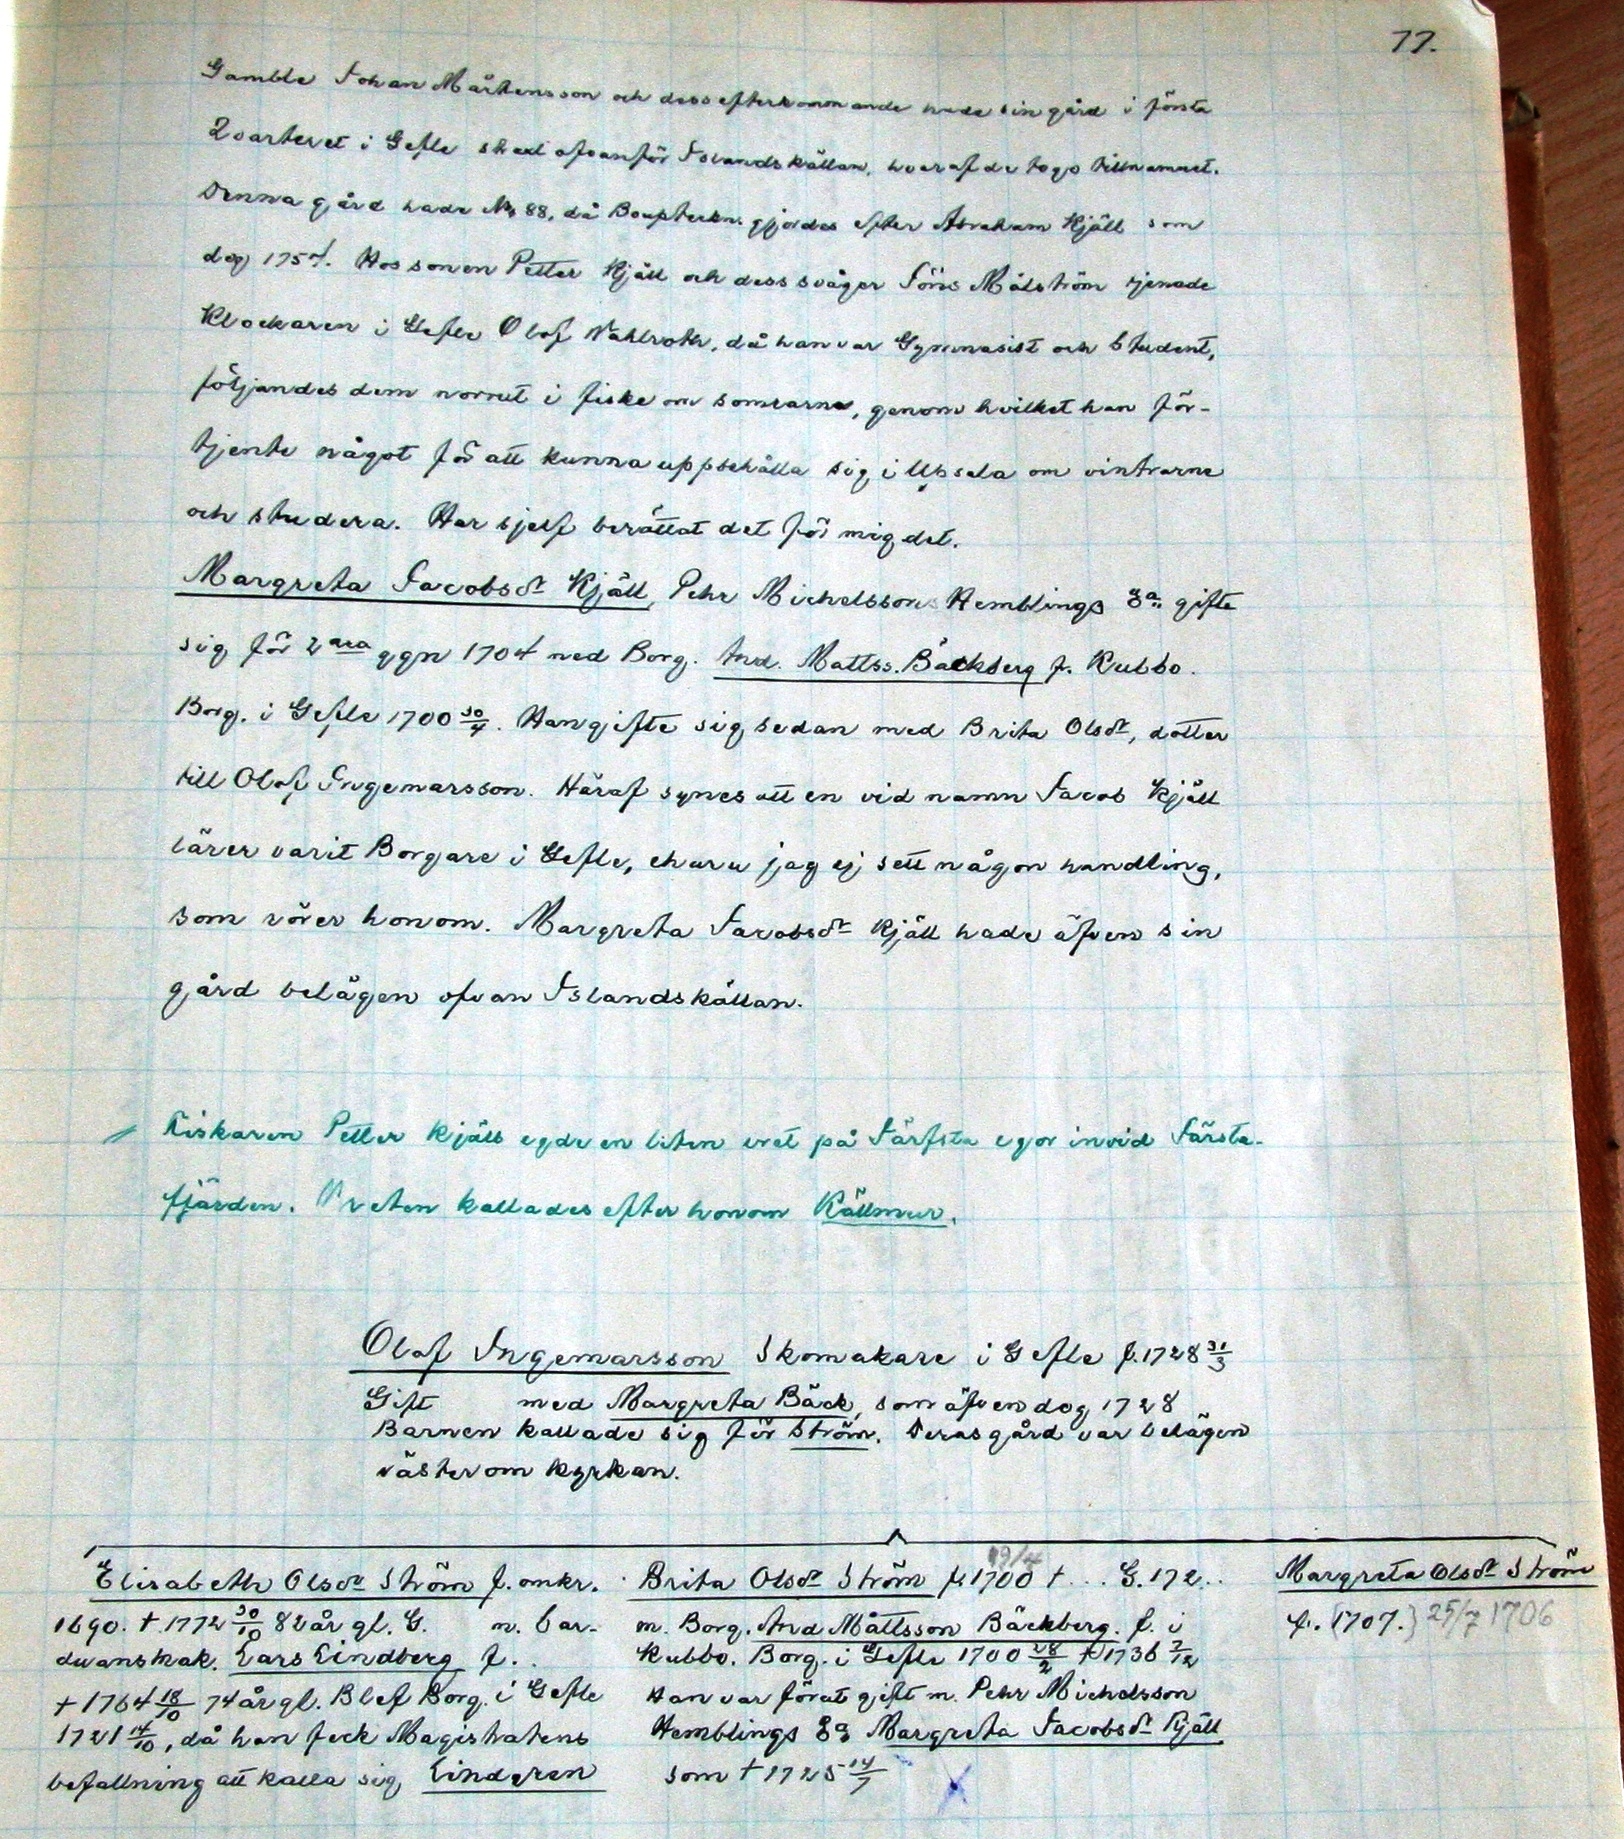 77.
Gamble Johan Mårtensson och dess efterkommande hade sin gård i första
Qvarteret i Gefle strax ofvanför Islandskällan, hvaraf de togo tillnamnet.
Denna gård hade No 88, då Bouptekn. gjordes efter Abraham Kjäll som
dog 1757. Hos sonen Petter Kjäll och dess svåger Jöns Målström tjenade
Klockaren i Gefle Olof Wahlroth, då han var Gymnasist och Student,
följandes dem norrut i fiske om somrarne, genom hvilket han för-
tjente något för att kunna uppehålla sig i Upsala om vintrarne
och studera. Har sjelf berättat det för mig det.
Margreta Jacobsdr Kjäll, Pehr Michelssons Hemblings Ea, gifte
sig för 2ara ggn 1704 med Borg. And. Mattss. Bäckberg f. Kubbo.
Borg. i Gefle 1700 30/4. Han gifte sig sedan med Brita Olsdr, dotter
till Olof Ingemarsson. Häraf synes att en vid namn Jacob Kjäll
lärer varit Borgare i Gefle, churu jag ej sett någon handling,
som rörer honom. Margreta Jacobsdr Kjäll hade äfven sin
gård belägen ofvan Islandskällan.
Fiskaren Petter Kjäll egde en liten vret på Järfsta egor invid Järsta-
fjärden. Vreten kallades efter honom Källmur.
Olof Ingemarsson Skomakare i Gefle f. 1728 31/3
Gift med Margreta Bäck, som äfven dog 1728
Barnen kallade sig för Ström. Deras gård var belägen
väster om kyrkan.
Elisabeth Olsdr Ström f. omkr.
1690. † 1772 30/10 82 år gl. G. m. Gar-
duansmak. Lars Lindberg f. .
† 1764 18/10 74 år gl. Blef Borg. i Gefle
1721 14/10, då han feck Magistratens
befallning att kalla sig Lindgren
19/4
Brita Olsdr Ström f. 1700 † ... G. 172..
m. Borg. And Måttsson Bäckberg. f. i
Kubbo. Borg. i Gefle 1700 28/2 † 1736 2/12
Han var förut gift m. Pehr Michelsson
Hemblings Ea Margreta Jacobsdr Kjäll
som † 1725 14/7
Margreta Olsdr Ström
f. (1707.) 25/7 1706